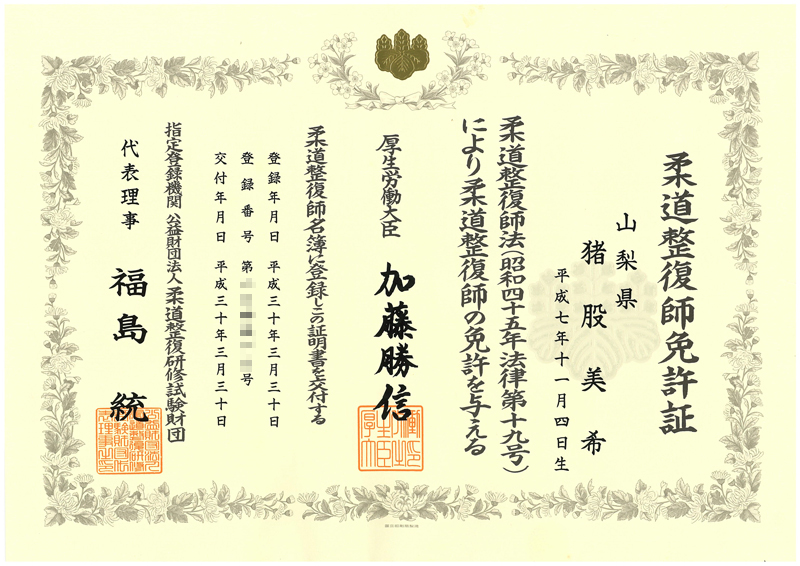 柔道整復師免許証
山梨県
猪股美希
平成七年十一月四日生
柔道整復師法(昭和四十五年法律第十九号)
により柔道整復師の免許を与える
厚生労働大臣 加藤勝信
柔道整復師名簿に登録しこの証明書を交付する
登録年月日 平成三十年三月三十日
登録番号 第 号
交付年月日 平成三十年三月三十日
指定登録機関 公益財団法人柔道整復研修試験財団
代表理事 福島統